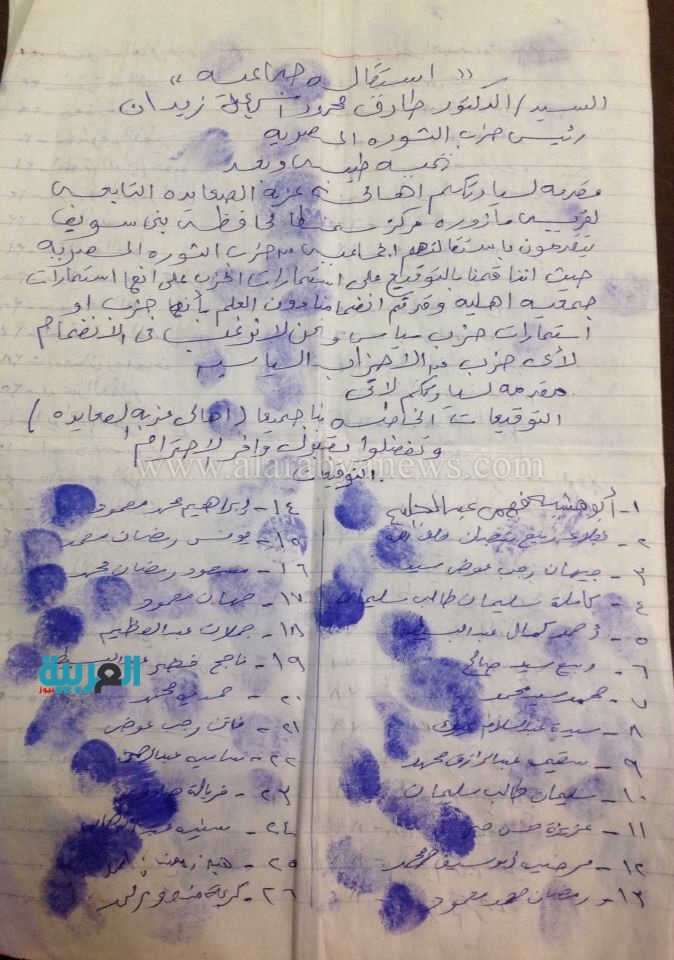 " استقاله جماعيه "
السيد / الدكتور طارق محمود اسماعيل زيدان
رئيس حزب الثوره المصريه
تحيه طيبه وبعد
مقدمه لسيادتكم اهالى عزبة الصعايده التابعه
لقريه مازوره مركز سمسطا محافظه بنى سويف
يتقدمون باستقالتهم الجماعيه من حزب الثوره المصريه
حيث اننا قمنا بالتوقيع على استمارات الحزب على انها استمارات
جمعيه اهليه وقد تم انضمامنا دون العلم بأنها حزب او
استمارات حزب سياسى ونحن لا نرغب فى الانضمام
لأى حزب من الاحزاب السياسيه
مقدمه لسيادتكم لأتى
التوقيعات الخاصه بنا جميعا ( اهالى عزبه الصعايده )
وتفضلوا بقبول وافر الاحترام
التوقيعات
www.alarabyanews.com
١- أبو هشيمه فهمى عبد الحليم
٢- ربيع رمضان خلف الله
٣- جيهان رجب عوض سيد
٤- كاملة سليمان طالب سليمان
٥- أحمد كمال عبد الباسط
٦- ربيع سيد صالح
٧- محمد سيد محمد
٨- سيدة عبد السلام
٩- عبد الرازق محمد
١٠- سليمان طالب سليمان
١١- عزيزة حسن
١٢- أبو سيف محمد
١٣- رمضان محمد محمود
١٤- إبراهيم محمد محمود
١٥- يونس رمضان محمد
١٦- مسعود رمضان محمد
١٧- جهان محمود
١٨- جملات عبد العظيم
١٩- ناجح خضر
٢٠- حمديه محمد
٢١- فاتن رجب عوض
٢٢- ساميه
٢٣- فريالة
٢٤-
٢٥-
٢٦- كريمة
العربية
نيوز